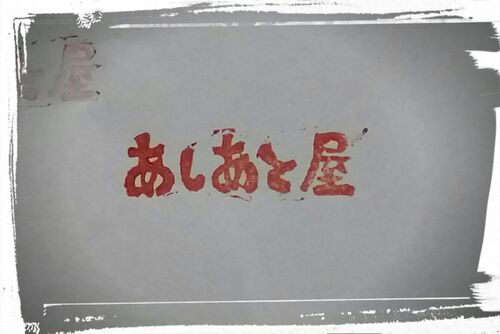 屋
あしあと屋